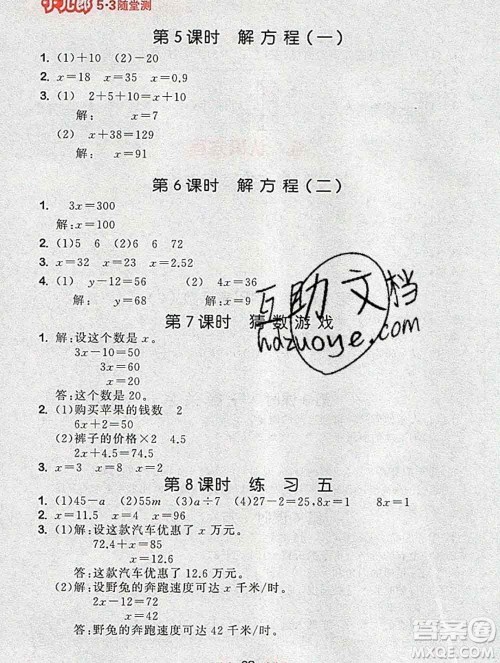 5·3随堂测
第5课时 解方程(一)
1. (1)9 (2)5
2. x=18 x=35 x=0.9
3. (1) 2+5+10=x+10
解: x=7
(2) x+38=129
解: x=91
第6课时 解方程(二)
1. 3x=300
解:x=100
2. (1)5 6 (2)2 6
3. x=32 x=23 x=2.52
4. (1) y-12=56 (2) 4x=36
解: y=68 解: x=9
第7课时 猜数游戏
1. 解:设这个数是x。
3x-10=50
x=20
答:这个数是20。
2. (1)购买苹果的钱数 2
6x+2=50
(2)裤子的价格×2 4.5
2x+4.5=74.5
3. x=10 x=6 x=9
第8课时 练习五
1. (1)45-a (2)55m (3)a÷7 (4)27-2=25, 8x=1
2. x=11 x=4 x=96
3. (1)解:设这款汽车优惠了x万元。
72.4+x=85
x=12.6
答:这款汽车优惠了12.6万元。
(2)解:设野兔的奔跑速度可达x千米/时。
2x=144
x=72
答:野兔的奔跑速度可达72千米/时。
互助文档
hdzuoye.com
答案圈
MXQE.COM